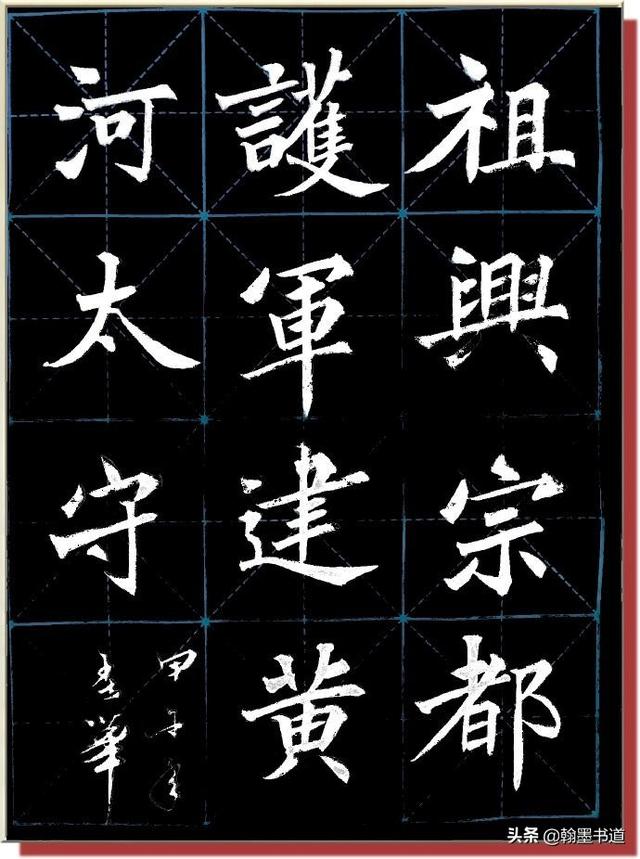 祖興宗都
護軍建黄
河太守
甲子年
華
头条 @翰墨书道